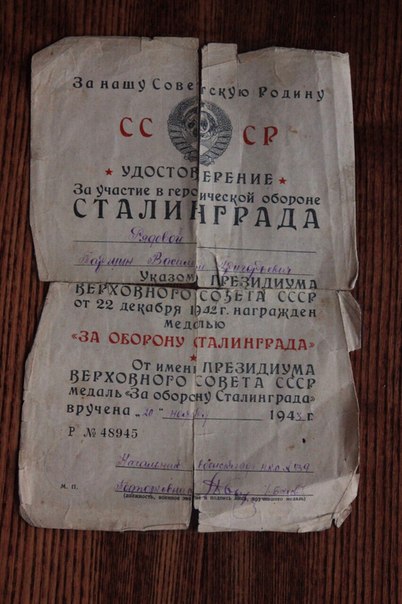 За нашу Советскую Родину
СССР
УДОСТОВЕРЕНИЕ
За участие в героической обороне
СТАЛИНГРАДА
Рядовой
Василий Григорьевич
Указом ПРЕЗИДИУМА
ВЕРХОВНОГО СОВЕТА СССР
от 22 декабря 1942 г. награжден
медалью
«ЗА ОБОРОНУ СТАЛИНГРАДА»
От имени ПРЕЗИДИУМА
ВЕРХОВНОГО СОВЕТА СССР
медаль «За оборону Сталинграда»
вручена „20" 194 г.
Р № 48945
Начальник
М. П. Подполковник
(должность, военное звание и подпись лица, вручившего медаль)